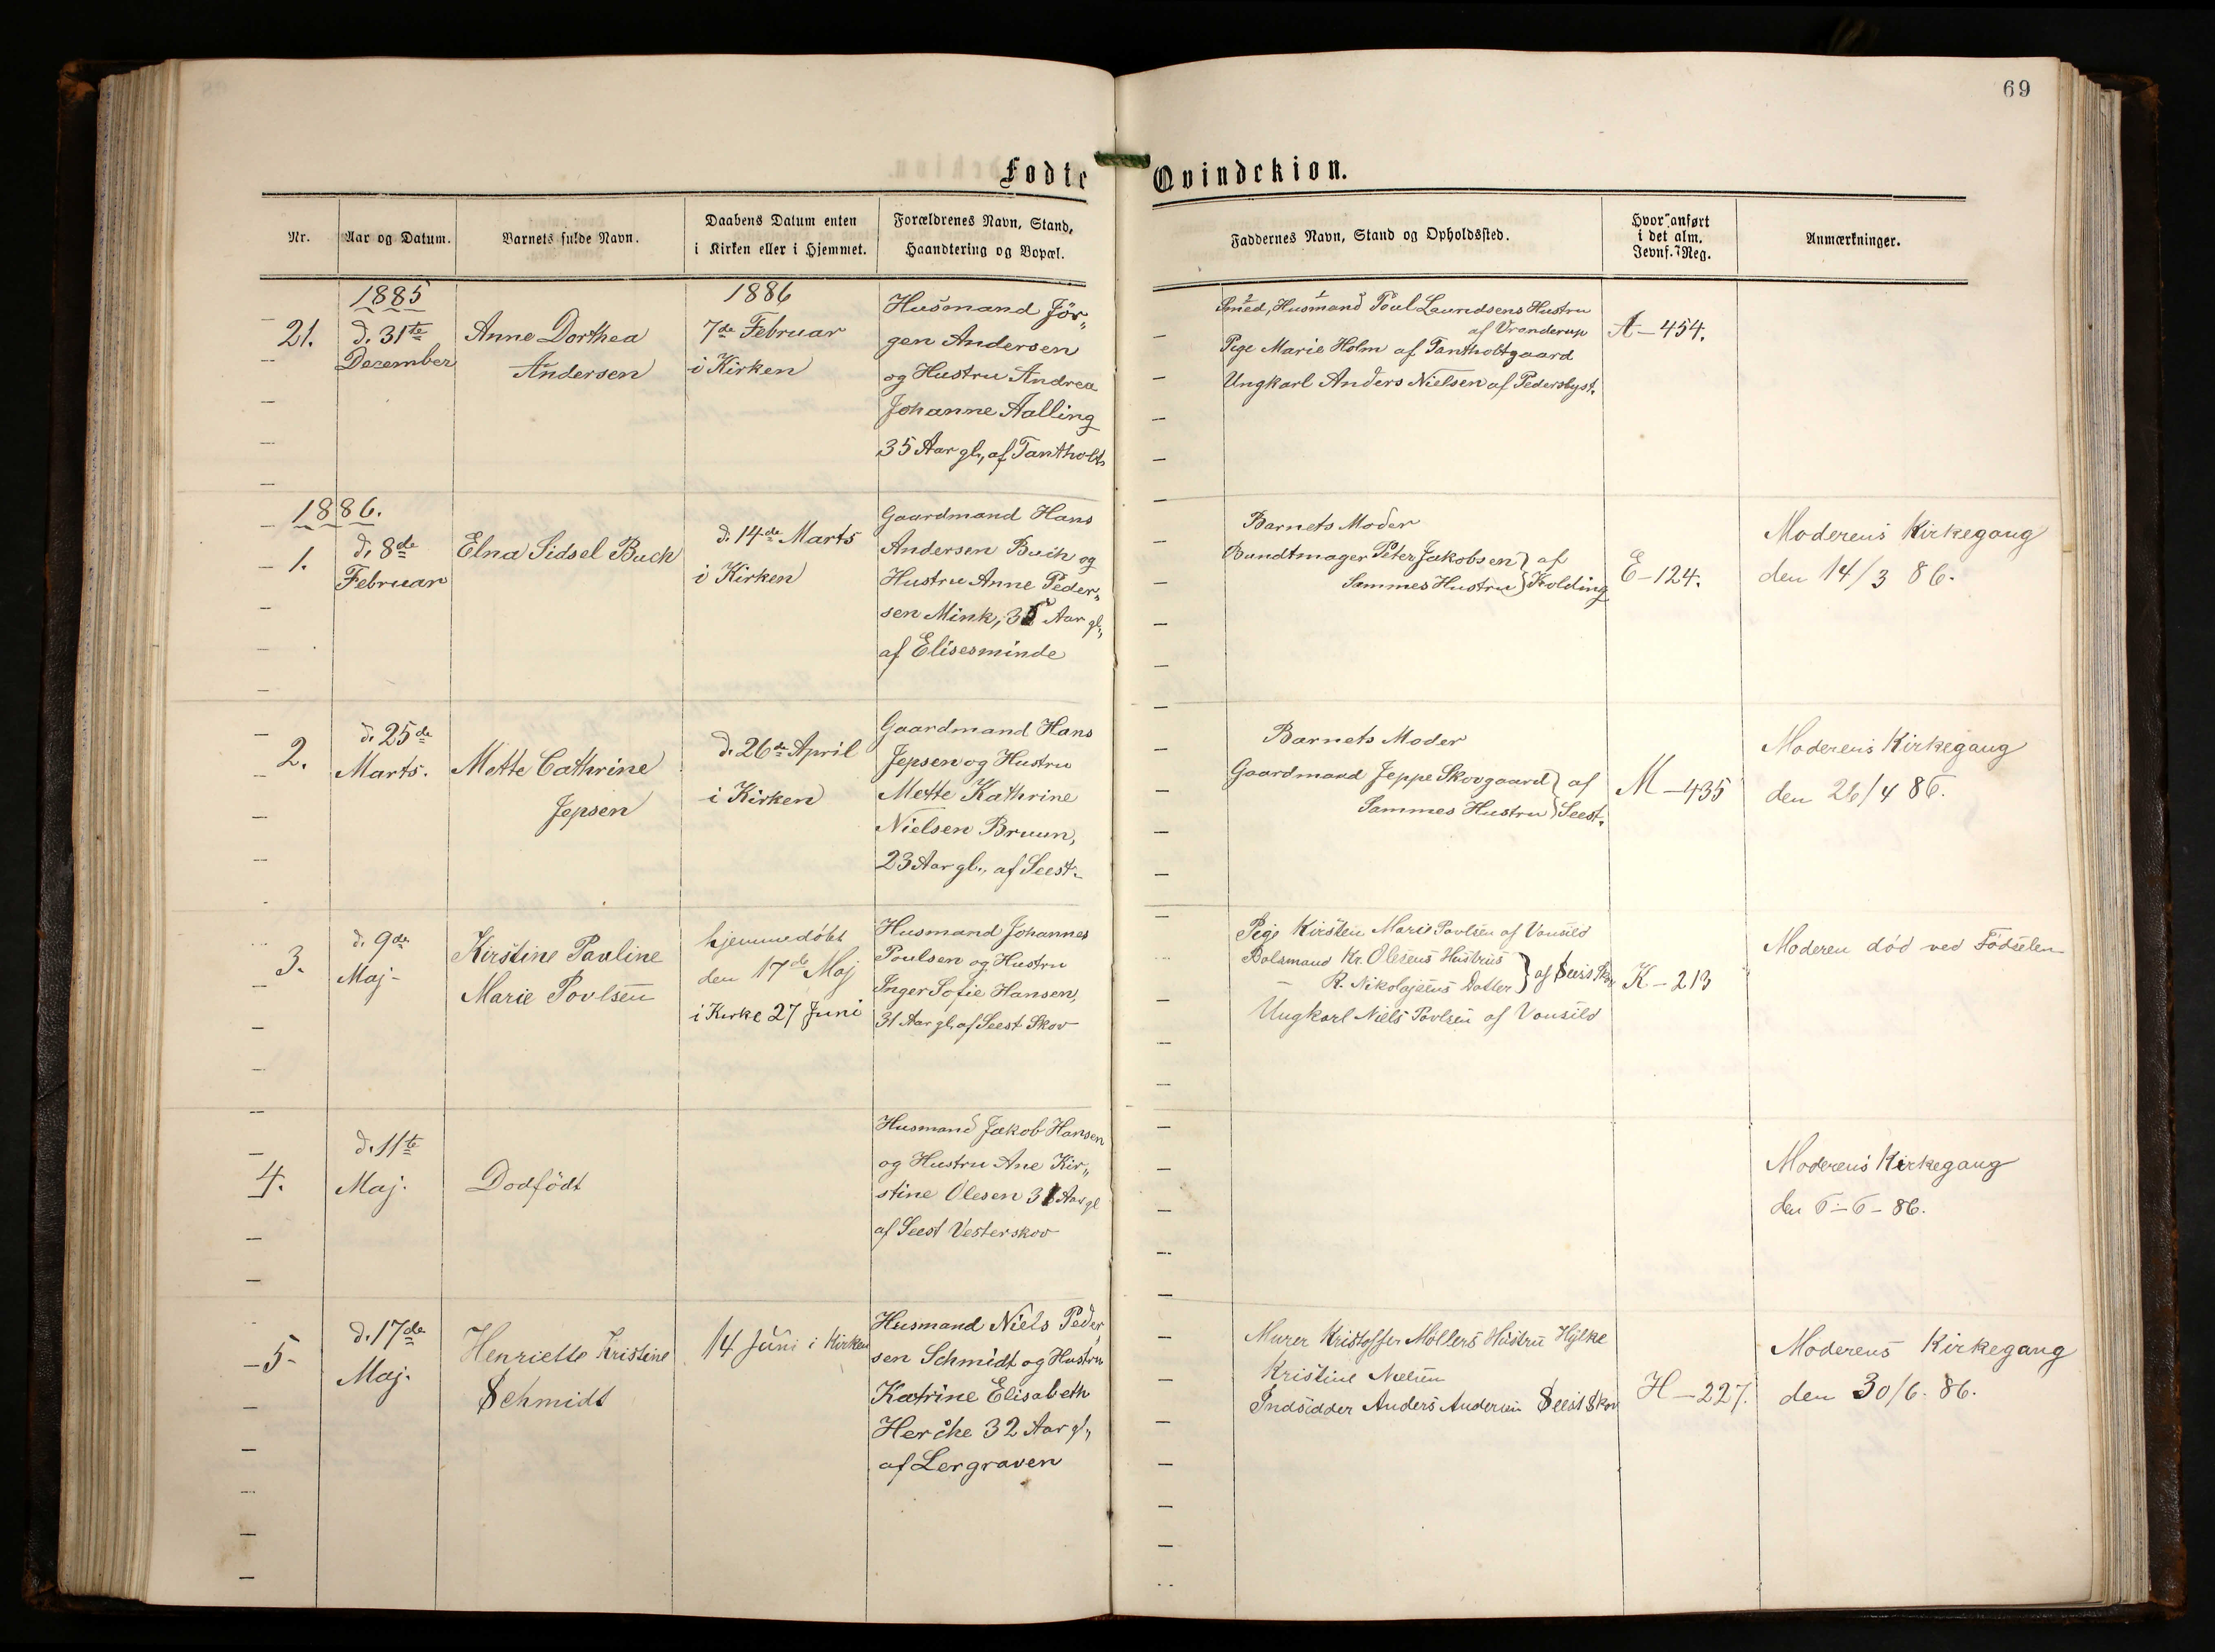 69
Fødte Qvindekiøn.
Nr.
Aar og Datum.
Barnets fulde Navn.
Daabens Datum enten
i Kirken eller i Hjemmet.
Forældrenes Navn, Stand,
Haandtering og Bopæl.
Faddernes Navn, Stand og Opholdssted.
Hvor anført
i det alm.
Jevnf. Reg.
Anmærkninger.
21.
1885
d. 31te
Dezember
Anne Dorthea
Andersen
1886
7de Februar
i Kirken
Husmand Jör„
gen Andersen
og Hustru Andrea
Johanne Aalling
35 Aar gl., af Tantholt
Smed, Husmand Poul Lauridsens Hustru
af Vranderup
Pige Marie Holm af Tantholtgaard
Ungkarl Anders Nielsen af Pedersbyst.
A – 454.
1886.
1.
d. 8de
Februar
Elna Sidsel Buch
d. 14de Marts
i Kirken
Gaardmand Hans
Andersen Buch og
Hustru Anne Peder„
sen Mink, Aar gl.,
af Elisesminde
Barnets Moder
Bundtmager Peter Jakobsen } af
Sammes Hustru } Kolding
E – 124.
Moderens Kirkegang
den 14/3 86.
2.
d. 25de
Marts.
Mette Cathrine
Jepsen
d. 26de April
i Kirken
Gaardmand Hans
Jepsen og Hustru
Mette Kathrine
Nielsen Bruun,
23 Aar gl., af Seest.
Barnets Moder
Gaardmand Jeppe Skovgaard } af
Sammes Hustru } Seest.
M – 435
Moderens Kirkegang
den 26/4 86.
3.
d. 9de
Maj-
Kirstine Pauline
Marie Povlsen
hjemmedöbt
den 17de Maj
i Kirke 27 Juni
Husmand Johannes
Poulsen og Hustru
Inger Sofie Hansen,
31 Aar gl. af Seest Skov
Pige Kirsten Marie Povlsen af Vonsild
Bolsmand Kr. Olesens Hustrus
R. Nikolajsens Datter } af Seest Skov
Ungkarl Niels Povlsen af Vonsild
K – 213
Moderen död ved Födselen
4.
d. 11te
Maj.
Dodfödt
Husmand Jakob Hansen
og Hustru Ane Kir„
stine Olesen Aar gl
af Seest Vesterskov
Moderens Kirkegang
den 6 – 6 – 86.
5
d. 17de
Maj.
Henriette Kristine
Schmidt
14 Juni i Kirken
Husmand Niels Peder
sen Schmidt og Hustru
Katrine Elisabeth
Herche 32 Aar gl.,
af Lergraven
Murer Kristoffer Möllers Hustru Hylke
Kristine
Indsidder Anders Andersen Seest Skov
H – 227.
Moderens Kirkegang
den 30/6. 86.